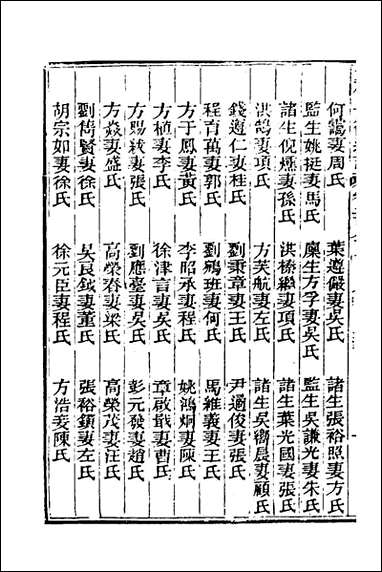 何鶴妻周氏 葉遵儼妻吳氏 諸生張裕照妻方氏
監生姚挺妻馬氏 廩生方孚妻吳氏 監生吳謙光妻朱氏
諸生倪燻妻孫氏 洪榛繼妻項氏 諸生葉光國妻張氏
洪鵠妻項氏 方芙航妻左氏 諸生吳裔晨妻顧氏
錢遵仁妻桂氏 劉秉章妻王氏 尹適俊妻張氏
程育萬妻郭氏 劉鵷班妻何氏 馬維義妻王氏
方于鳳妻黃氏 李昭承妻程氏 姚鴻炯妻陳氏
方植妻李氏 徐津言妻吳氏 章啟戢妻曹氏
方賜紱妻張氏 劉應臺妻吳氏 彭元發妻趙氏
方焱妻盛氏 高榮春妻梁氏 高榮茂妻汪氏
劉倚賢妻徐氏 吳良鉞妻董氏 張裕鎮妻左氏
胡宗如妻徐氏 徐元臣妻程氏 方浩妾陳氏